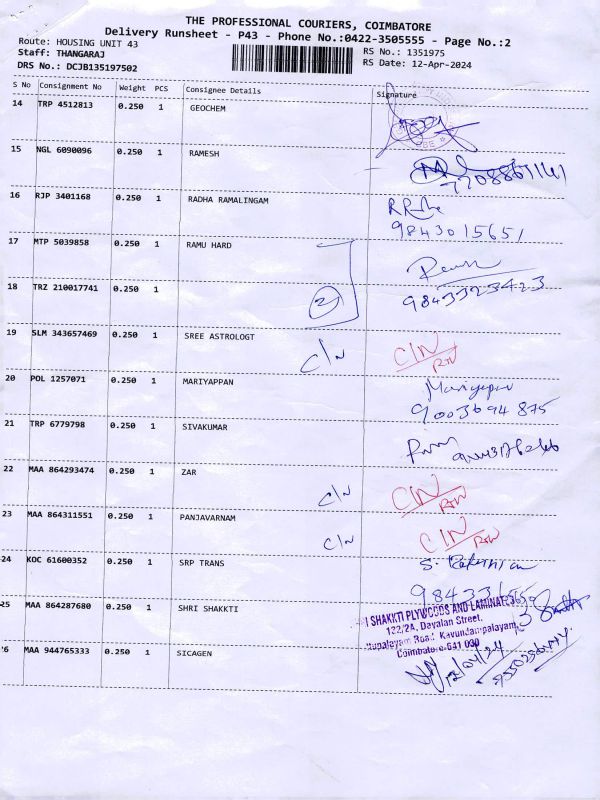 THE PROFESSIONAL COURIERS, COIMBATORE
Delivery Runsheet - P43 - Phone No.:0422-3505555 - Page No.:2
Route: HOUSING UNIT 43
Staff: THANGARAJ
DRS No.: DCJB135197502
RS No.: 1351975
RS Date: 12-Apr-2024
S No Consignment No Weight PCS Consignee Details Signature
14 TRP 4512813 0.250 1 GEOCHEM
15 NGL 6090096 0.250 1 RAMESH
16 RJP 3401168 0.250 1 RADHA RAMALINGAM
9843015651
17 MTP 5039858 0.250 1 RAMU HARD
18 TRZ 210017741 0.250 1 2 9843323423
19 SLM 343657469 0.250 1 SREE ASTROLOGT C/N C/N
20 POL 1257071 0.250 1 MARIYAPPAN Mariyappan
9003694875
21 TRP 6779798 0.250 1 SIVAKUMAR
22 MAA 864293474 0.250 1 ZAR C/N C/N
23 MAA 864311551 0.250 1 PANJAVARNAM C/N C/N
24 KOC 61600352 0.250 1 SRP TRANS
25 MAA 864287680 0.250 1 SHRI SHAKKTI
I SHAKKTI PLYWOODS AND LAMINATES
122/2A, Dayalan Street,
Kavundampalayam,
Coimbatore-641 030
26 MAA 944765333 0.250 1 SICAGEN
12/04/24